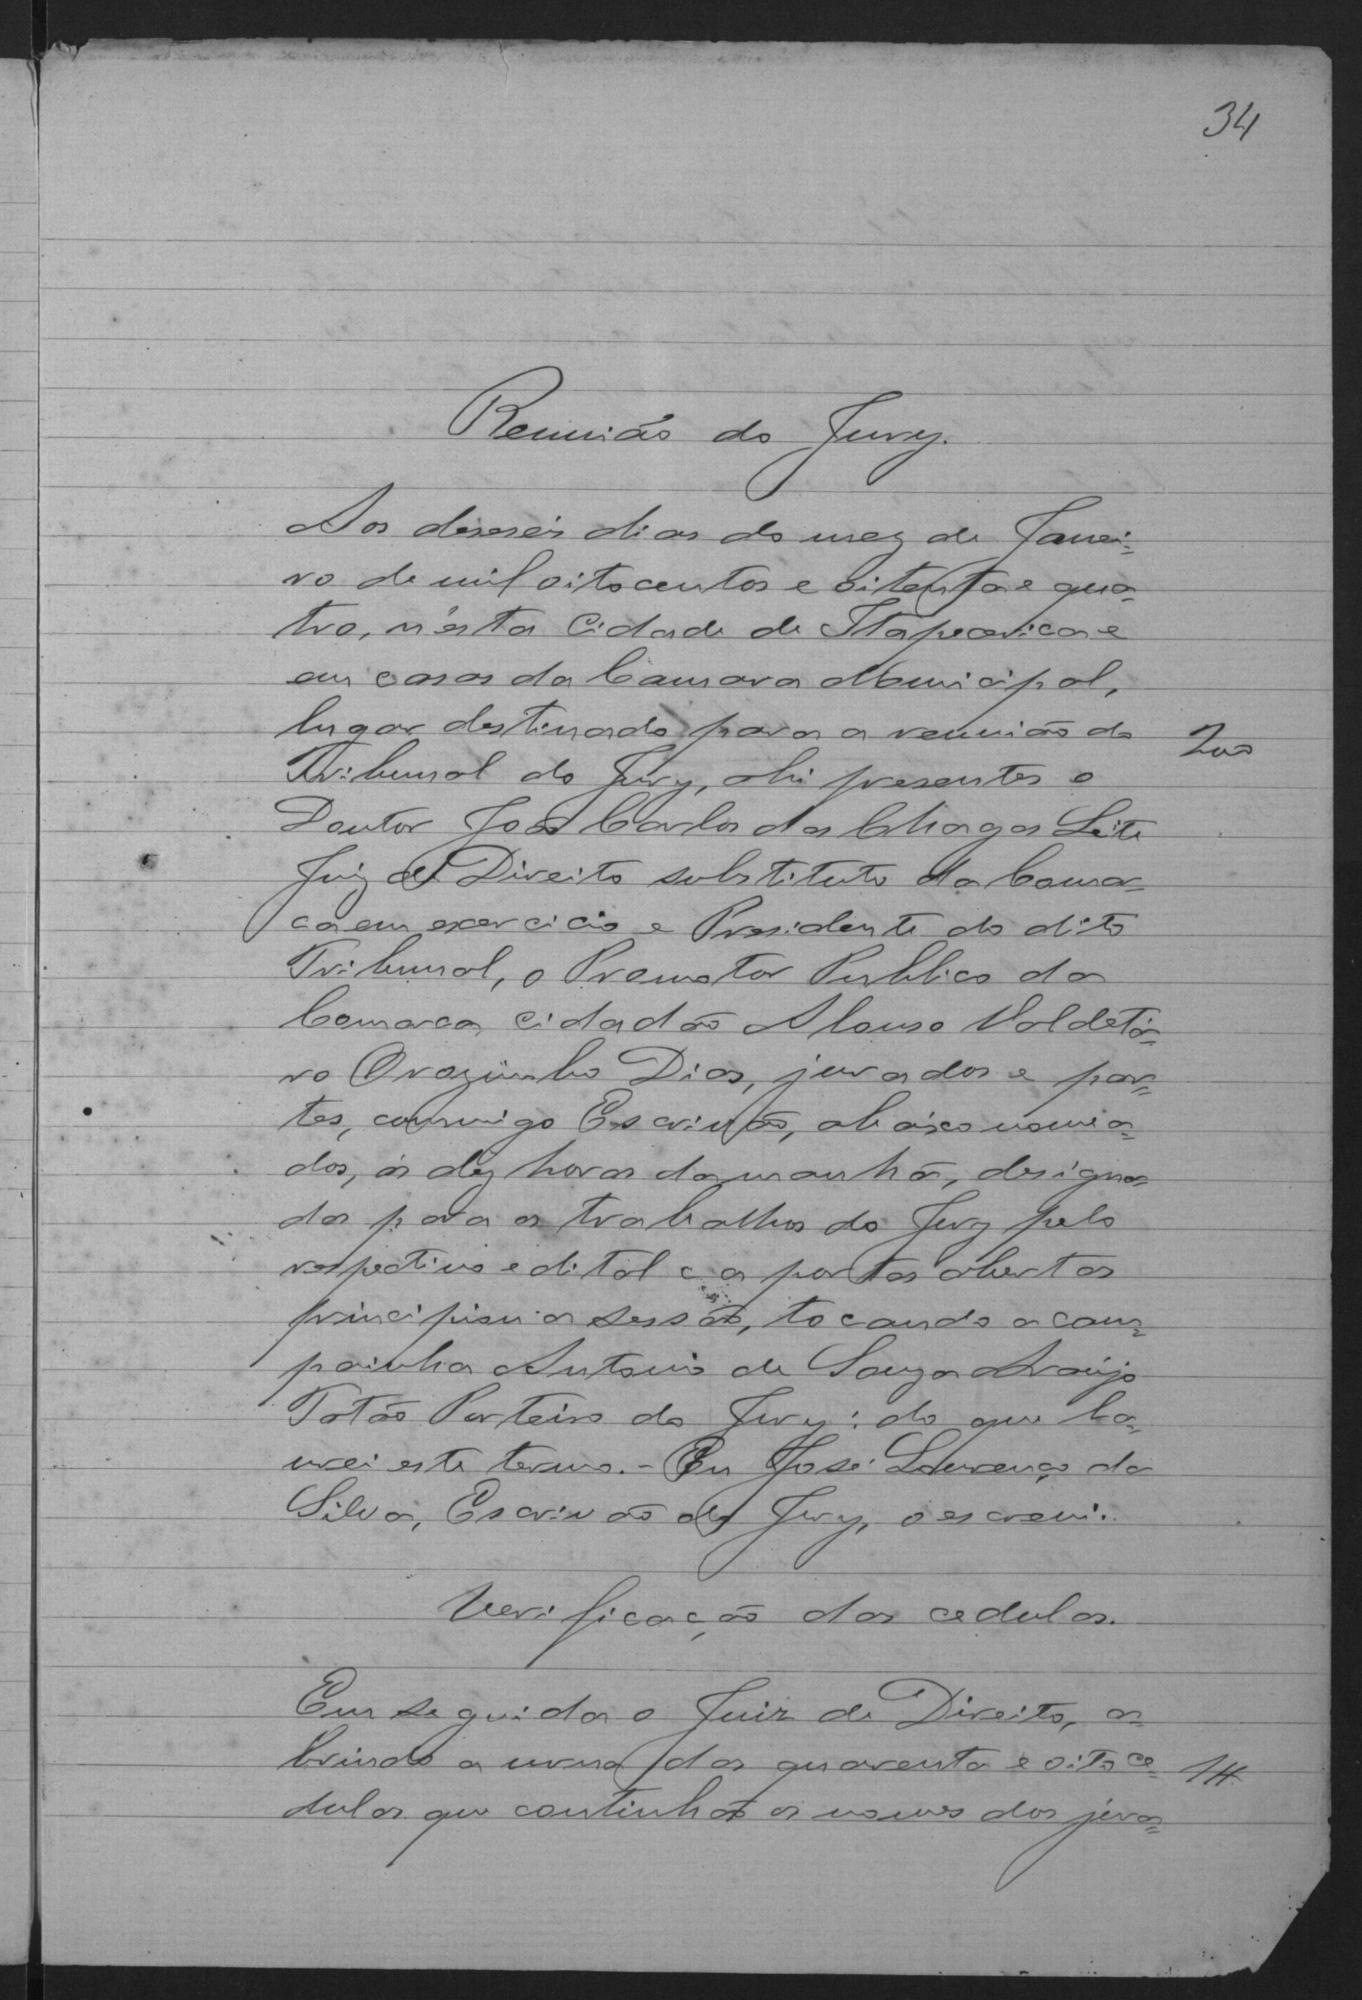 34
Reunião do Jury.
Aos deseseis dias do mez de Janei=
ro de mil oitocentos e oitenta e qua=
tro, n'ésta Cidade de Itapecerica e
em casas da Camara Municipal,
lugar destinado para a reunião do
200
Tribunal do Jury, ahi presentes o
Doutor João Carlos das Chagas Leite
Juiz de Direito substituto da Comar=
ca em exercicio e Presidente do dito
Tribunal, o Promotor Publico da
Comarca cidadão Alonso Valdetá=
ro Orozimbo Dias, jurados e par=
tes, commigo Escrivão, abaixo nomea=
dos, ás dez horas da manhã, designa=
das para os trabalhos do Jury pelo
respectivo edital e a portas abertas
principiou a sessão, tocando a cam=
painha Antonio de Souza Araujo
Tatão Porteiro do Jury: do que la=
vrei este termo. - Eu José Lourenço da
Silva, Escrivão do Jury, o escrevi.
Verificação das cedulas.
Em seguida o Juiz de Direito, a=
brindo a urna das quarenta e oito ce=
1#
dulas que continhão os nomes dos jura=